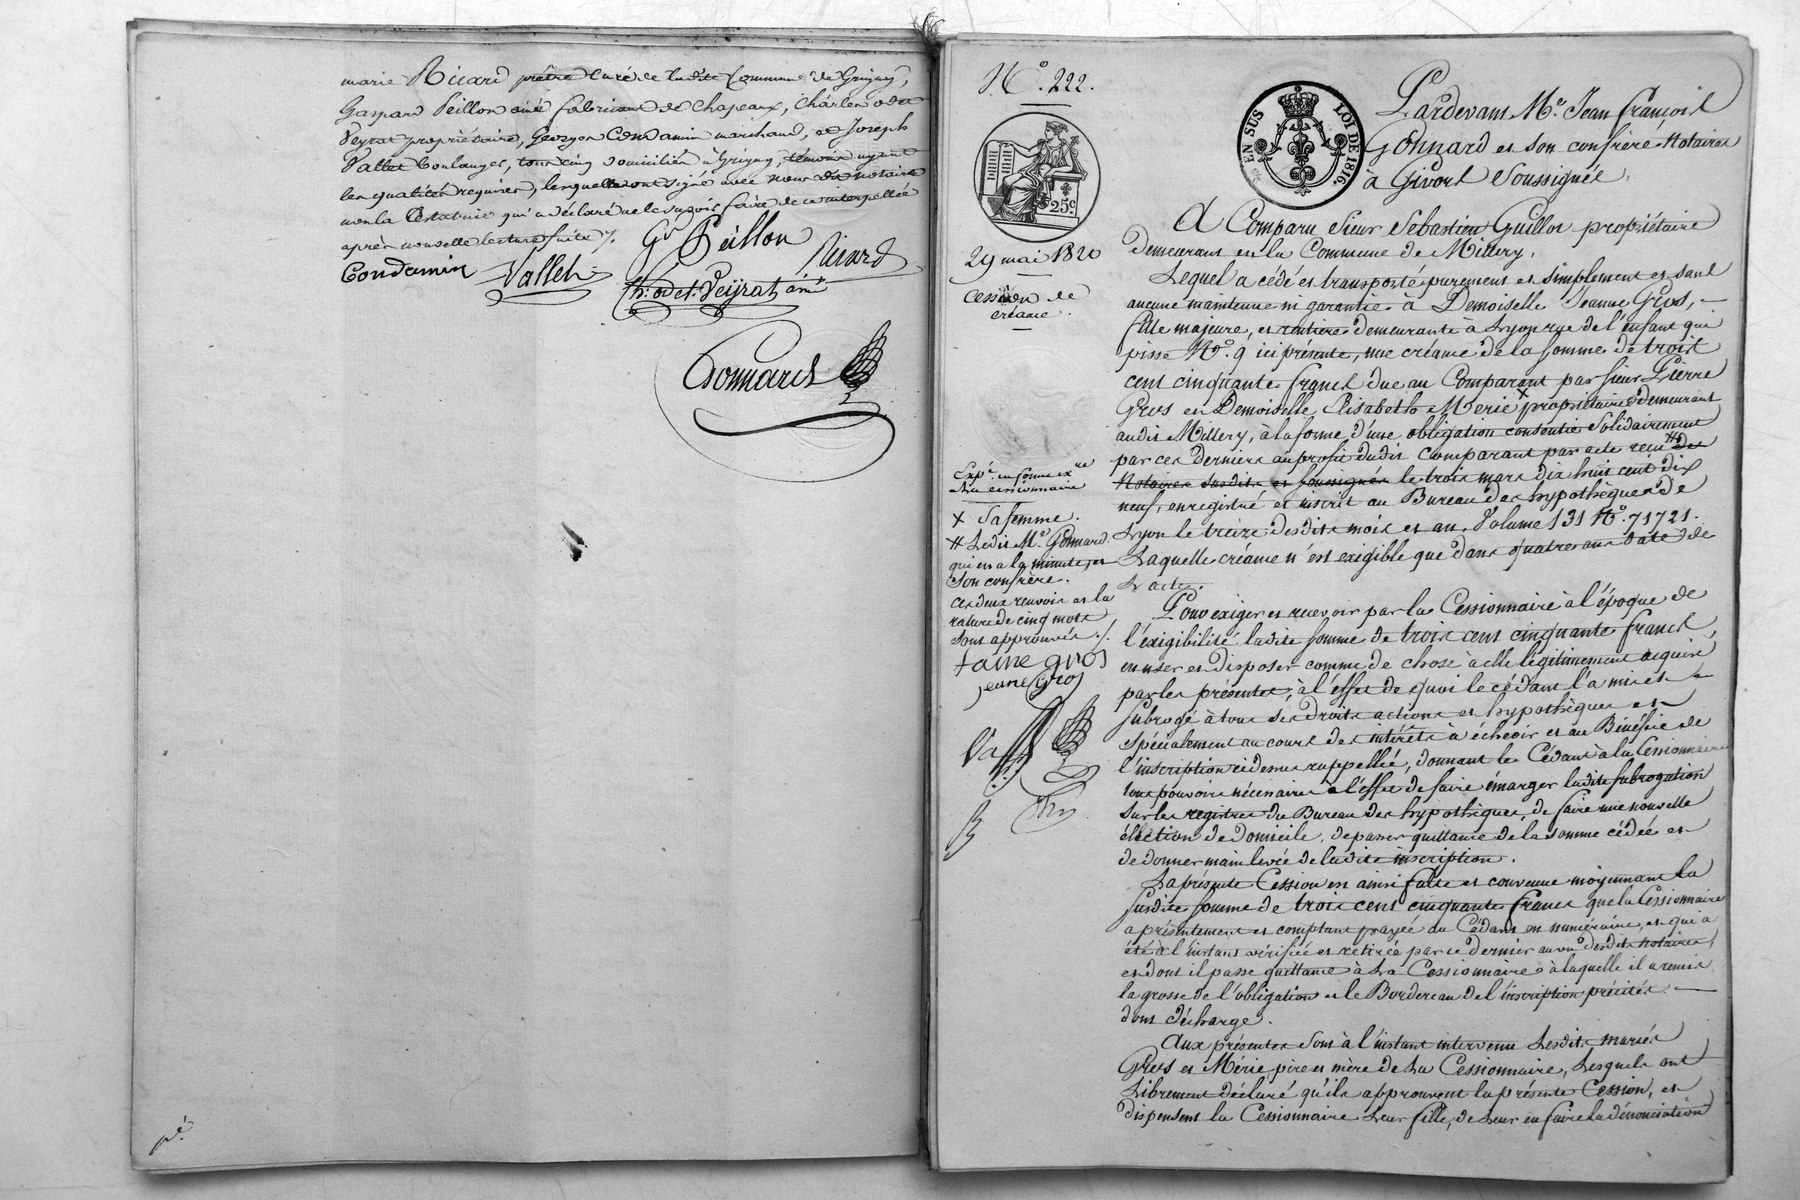 marie Ricard prêtre curé de ladite Commune de Grigny,
Gaspard Peillon ainé fabricant de chapeaux, Charles odet
Veyrat propriétaire, Georges Condamin marchand, et Joseph
Vallet boulanger, tous cinq domiciliés à Grigny, témoins ayant
les qualités requises, lesquels ont signé avec nous dit notaire
non la testatrice qui a déclaré ne le savoir faire de ce interpellée
après nouvelle lecture faite ./.
Gd Peillon
Ricard
Condamin
Vallet
Ch: odet Veyrat ainé
Gonnard
pé
No. 222.
25c
29 mai 1820
Cession de
créance.
EN SUS
LOI DE 1816.
Pardevant Me. Jean François
Gonnard et son confrère Notaires
à Givors Soussignés,
A Comparu Sieur Sébastien Guillot propriétaire
demeurant en la Commune de Millery.
Lequel a cédé et transporté purement et simplement et sans
aucune maintenue ni garantie à Demoiselle Jeanne Gros,
fille majeure, et rentière demeurante à Lyon rue de l'enfant qui
pisse No. 9 ici présente, une créance de la somme de trois
cent cinquante francs due au Comparant par sieur Pierre
Gros et Demoiselle Elisabeth Merie x propriétaires demeurant
audit Millery, à la forme d'une obligation consentie solidairement
par ces derniers au profit dudit comparant par acte reçu # des
Notaires susdits et soussignés le trois mars dix huit cent dix
neuf, enregistré et inscrit au Bureau des hypothèques de
Lyon le treize desdits mois et an, Volume 131 No. 71721.
Laquelle créance n'est exigible que dans quatre ans date de
L'acte.
Pour exiger et recevoir par la Cessionnaire à l'époque de
l'exigibilité ladite somme de trois cent cinquante francs,
en user et disposer comme de chose à elle légitimement acquise
par les présentes, à l'effet de quoi le cédant l'a mise et
subrogé à tous ses droits actions et hypothèques et
spécialement au cours des intérêts à échoir et au Bénéfice de
l'inscription cidessus rappellée, donnant le Cédant à la Cessionnaire
tous pouvoirs nécessaires à l'effet de faire émarger ladite subrogation
sur les registres du Bureau des hypothèques, de faire une nouvelle
élection de domicile, de passer quittance de la somme cédée et
de donner main levée de ladite inscription.
La présente Cession est ainsi faite et convenue moyennant la
susdite somme de trois cent cinquante francs que la Cessionnaire
a présentement et comptant payée au Cédant en numéraire, et qui a
été à l'instant vérifiée et retirée par ce dernier au vu desdits notaires,
et dont il passe quittance à La Cessionnaire à laquelle il a remis
la grosse de l'obligation et le Bordereau de l'inscription précités
dont décharge.
Aux présentes sont à l'instant intervenu Lesdits mariés
Gros et Mérie, père et mère de La Cessionnaire, Lesquels ont
Librement déclaré qu'ils approuvent la présente Cession, et
dispensent la Cessionnaire Leur fille, de Leur en faire la dénonciation
Expé. en forme exre
à la cessionnaire
x Sa femme.
# Ledit Me. Gonnard
qui en a la minute, et
Son confrère.
Ces deux renvois et la
rature de cinq mots
sont approuvés ./.
jeane gros